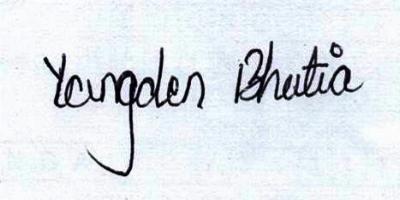 Yangden Bhutia